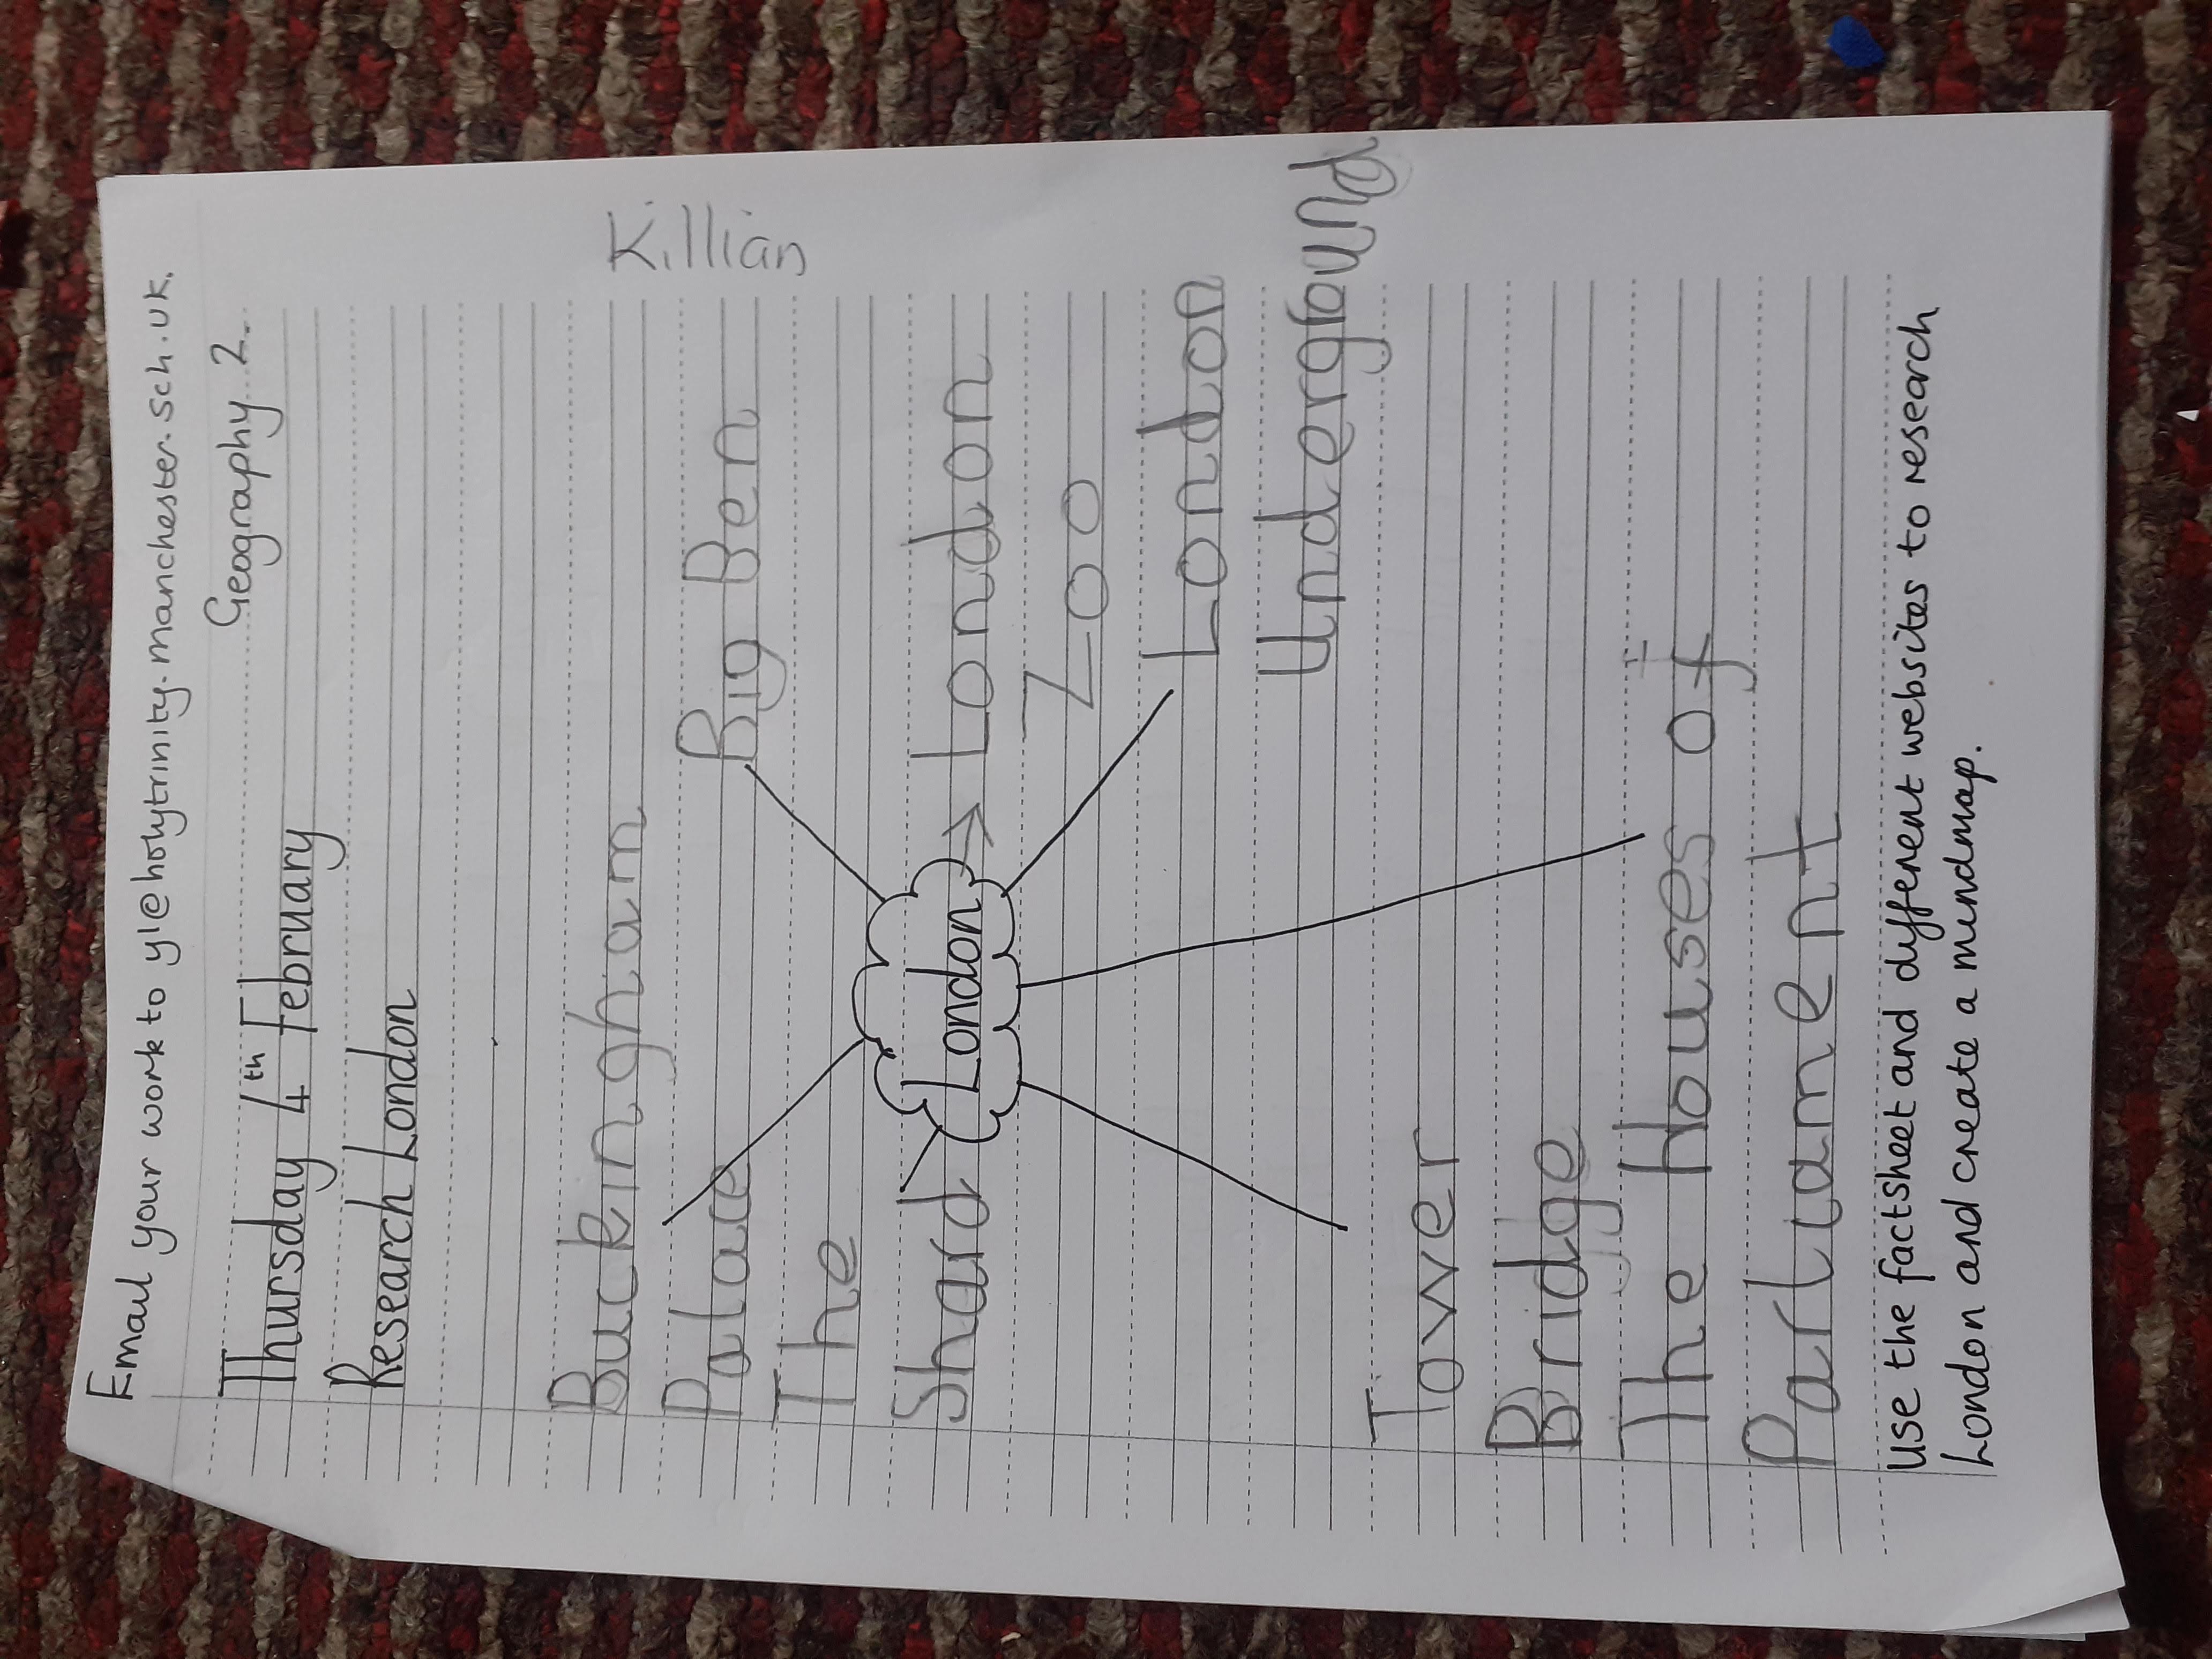 Email your work to y1@holytrinity.manchester.sch.uk.
Geography 2
Thursday 4th February
Research London
Killian
Buckingham
Palace
Big Ben
The
Shard
London
London
Zoo
London
Underground
Tower
Bridge
The Houses of
Parliament
Use the factsheet and different websites to research
London and create a mindmap.